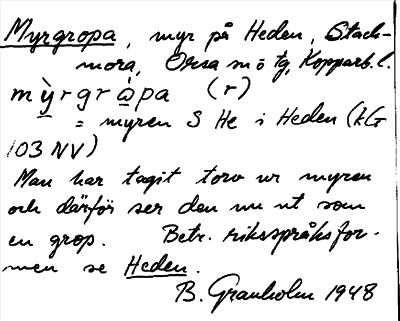 Myrgropa, myr på Heden, Stack-
mora, Orsa sn ö tg, Kopparb. l.
mỳrgrὰpa (r)
= myren S He i Heden (kG
103 NV)
Man har tagit torv ur myren
och därför ser den nu ut som
en grop. Betr. riksspråksfor-
men se Heden.
B. Granholm 1948